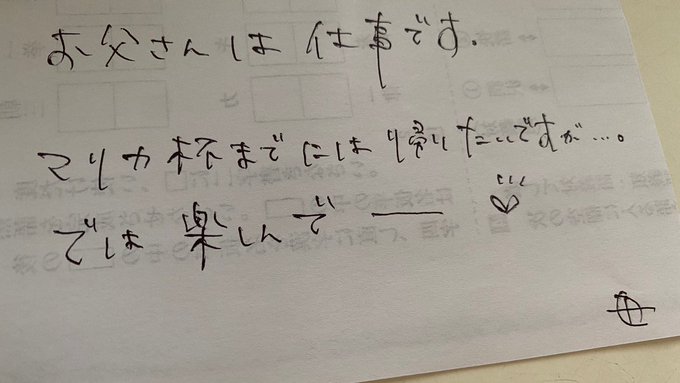 お父さんは仕事です.
マリカ杯までには帰りたいですが…。
では楽しんでー ♡
母